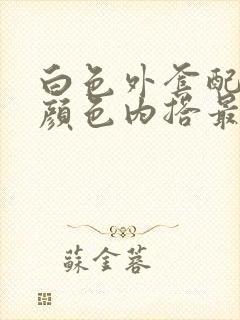 白色外套配
颜色内搭最
蘇金蓉